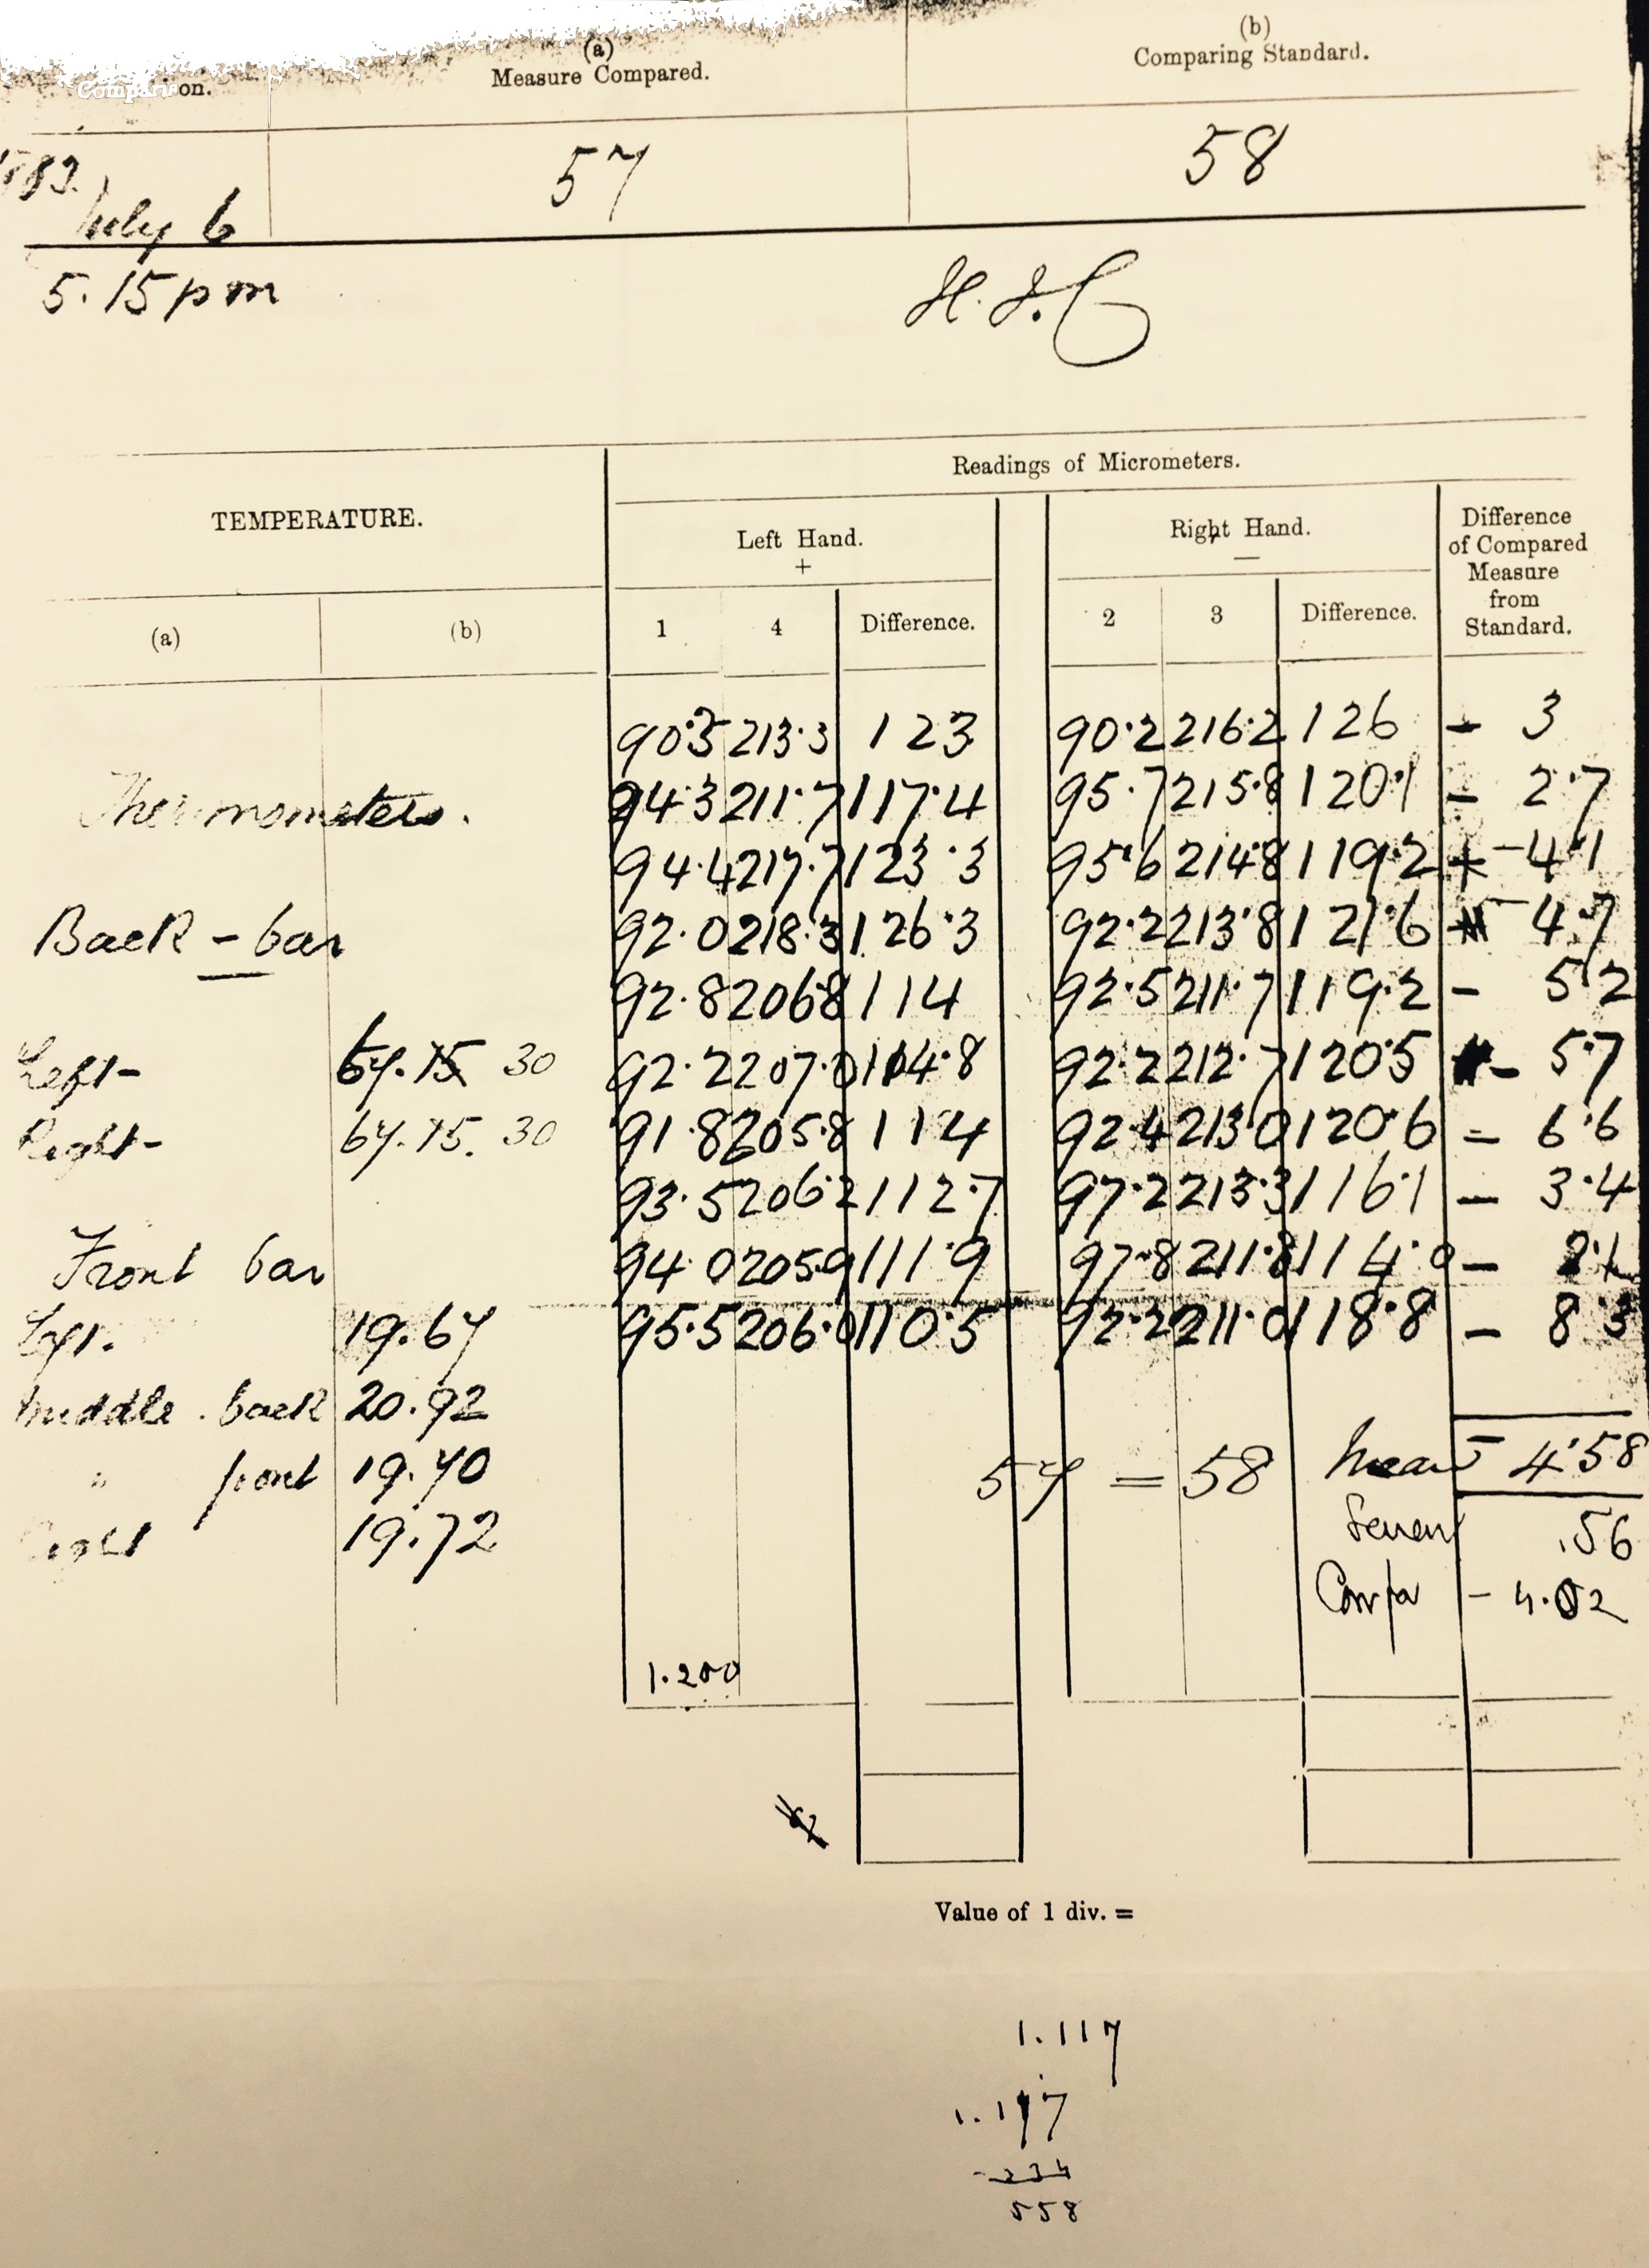 (a) (b)
Comparison. Measure Compared. Comparing Standard.
57 58
July 6
5.15 pm
Readings of Micrometers.
TEMPERATURE. Left Hand. Right Hand. Difference of Compared Measure from Standard.
+ —
(a) (b) 1 4 Difference. 2 3 Difference.
90.3 213.3 123 90.2 216.2 126 - 3
Thermometers. 94.3 211.7 117.4 95.7 215.8 120.1 - 2.7
94.4 217.7 123.3 95.6 214.8 119.2 + - 4.1
Back - bar 92.0 218.3 126.3 92.2 213.8 121.6 - 4.7
92.8 206.8 114 92.5 211.7 119.2 - 5.2
Left - 64.15 30 92.2 207.0 114.8 92.2 212.7 120.5 - 5.7
Right - 64.15. 30 91.8 205.8 114 92.4 213.0 120.6 - 6.6
93.5 206.2 112.7 97.2 213.3 116.1 - 3.4
Front bar 94.0 205.9 111.9 97.8 211.8 114.0 - 2.1
Left. 19.64 95.5 206.0 110.5 92.2 211.0 118.8 - 8.3
Middle . back 20.92
" front 19.40 57 = 58 Mean - 4.58
Right 19.72 .56
- 4.02
1.200
Value of 1 div. =
1.117
1.117
234
558